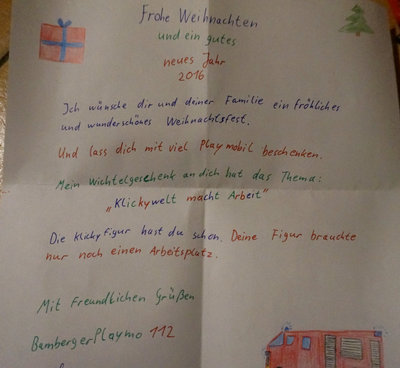 Frohe Weihnachten
und ein gutes
neues Jahr
2016
Ich wünsche dir und deiner Familie ein fröhliches
und wunderschönes Weihnachtsfest.
Und lass dich mit viel Playmobil beschenken.
Mein Wichtelgeschenk an dich hat das Thema:
„Klickywelt macht Arbeit"
Die Klickyfigur hast du schon. Deine Figur brauchte
nur noch einen Arbeitsplatz.
Mit Freundlichen Grüßen
BambergerPlaymo 112